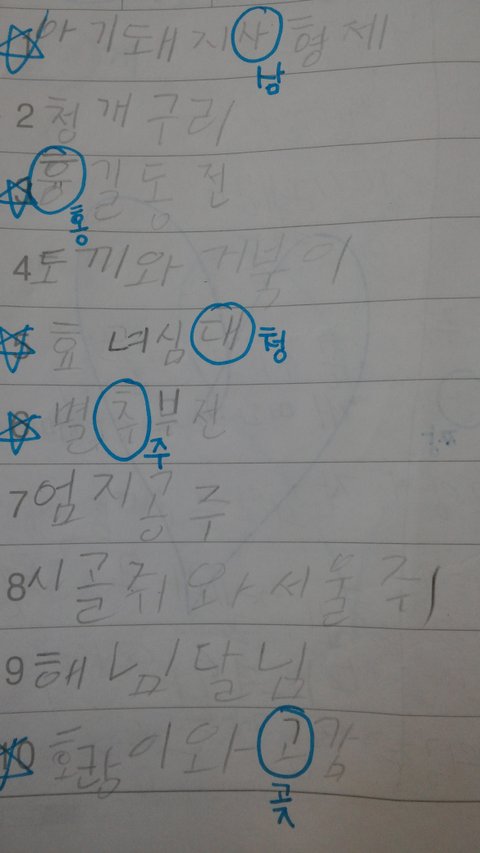 1 아기돼지사형제
남
2 청개구리
3 흥길동전
홍
4 토끼와 거북이
5 효녀심대
청
6 별추부전
주
7 엄지공주
8 시골쥐와 서울쥐
9 해님달님
10 호랑이와 고감
곶